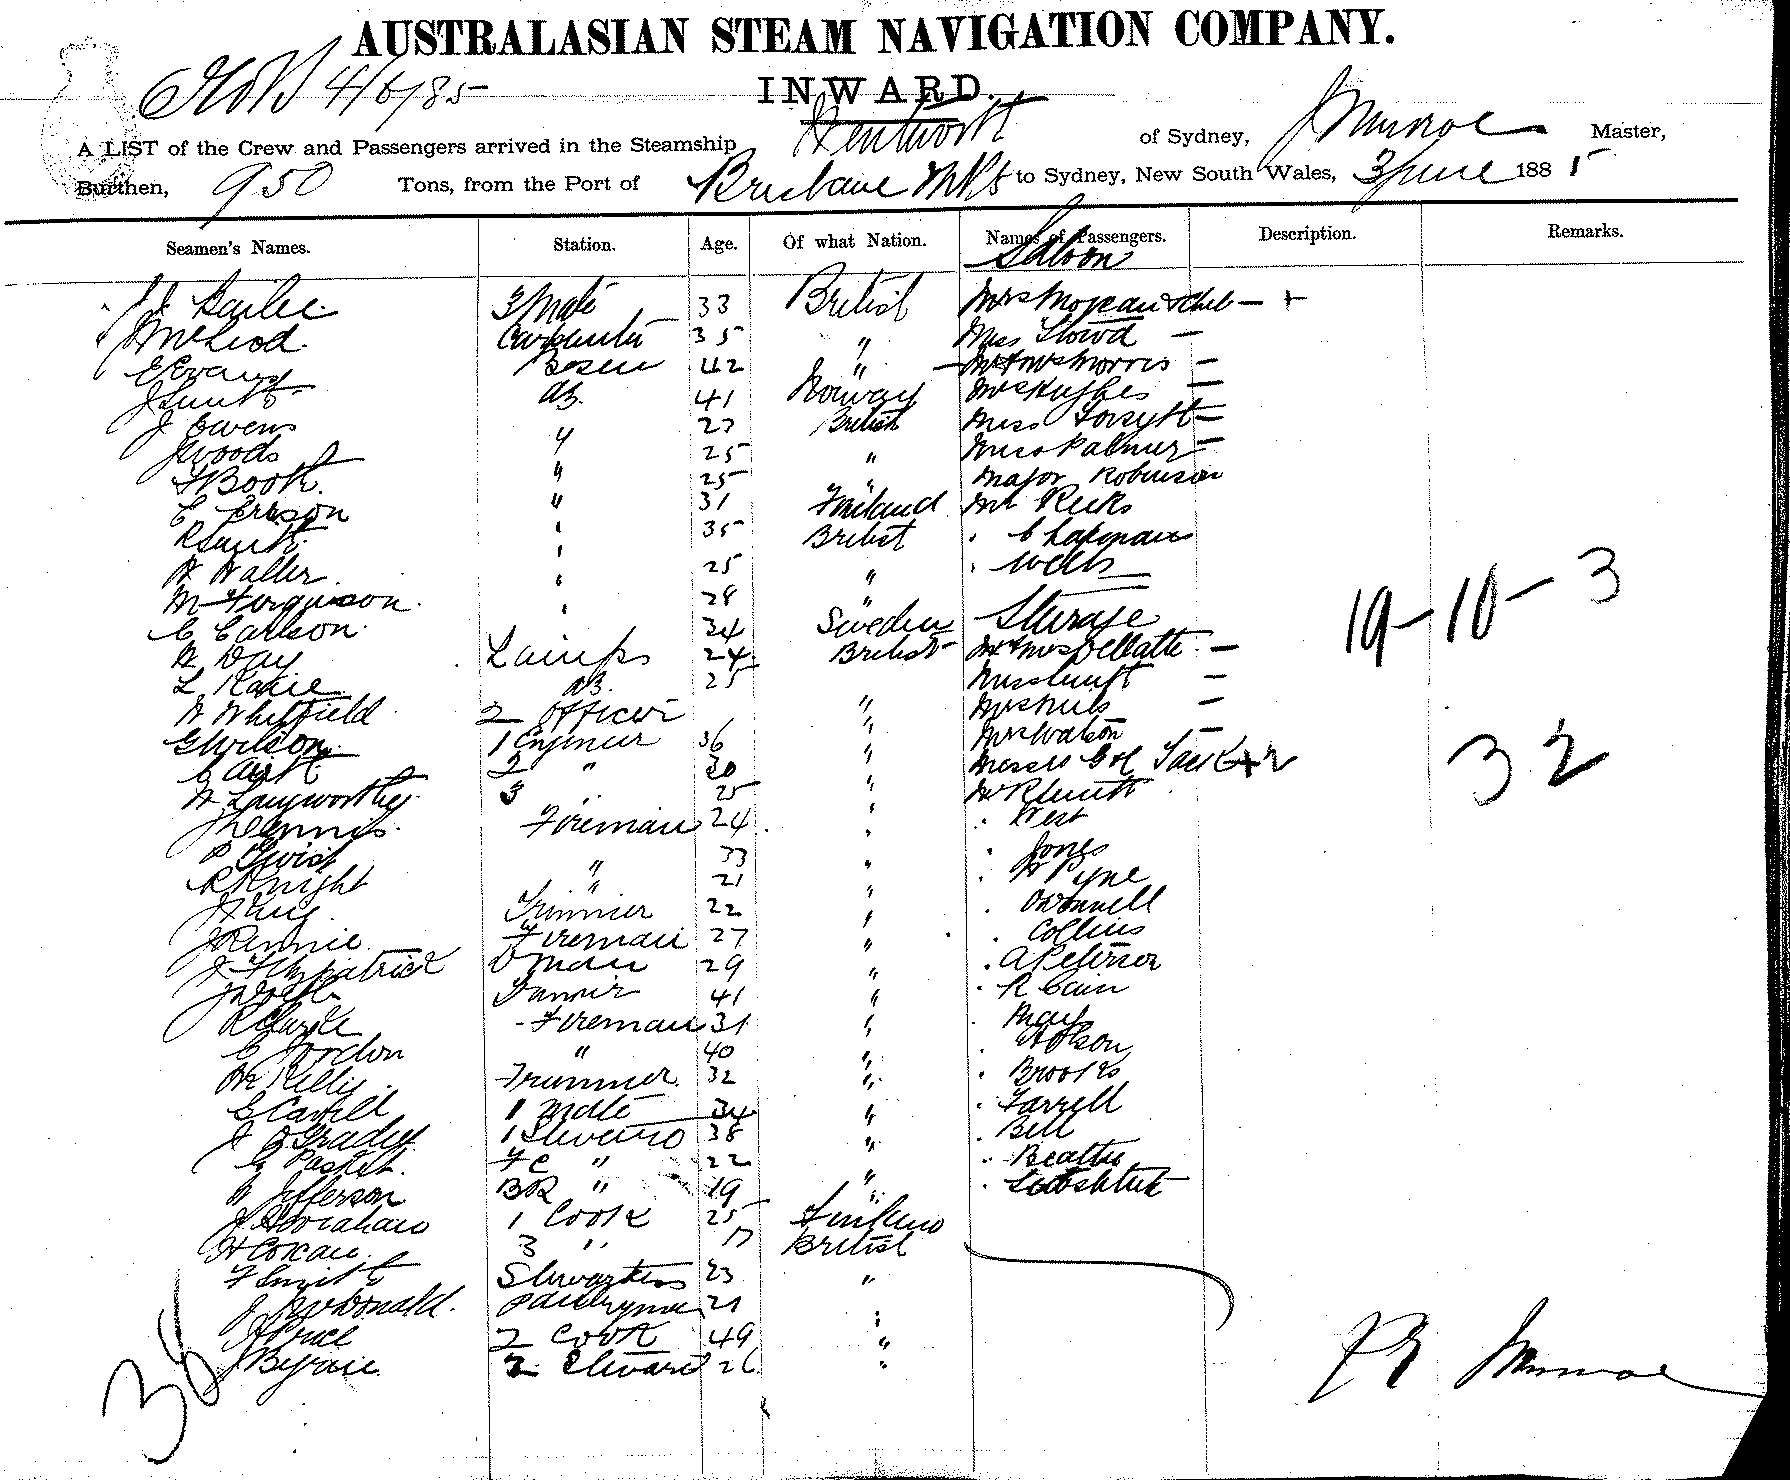 AUSTRALASIAN STEAM NAVIGATION COMPANY.
4/6/85
INWARD.
A LIST of the Crew and Passengers arrived in the Steamship Wentworth of Sydney, J Munroe Master,
Burthen, 950 Tons, from the Port of Brisbane to Sydney, New South Wales, 3 June 1885
Seamen's Names. Station. Age. Of what Nation. Names of Passengers. Description. Remarks.
Saloon
3 Mate 33 British Mrs —
J McLeod Carpenter 35 " Miss —
E Evans Bosun 42 " Mr & Mrs Morris —
J AB. 41 Norway Mrs Hughes —
J Owens " 27 British Miss Forsyth —
J Woods " 25 " Miss Palmer —
F Book " 25 " Major Robinson
C Erison " 31 Finland Mr Reeks
R Smith " 35 British " Chapman
W Waller " 25 " " Wells
M Ferguson " 28 "
C Carlson " 34 Sweden Steerage
W Day Lamps 24 British Mr & Mrs —
L AB. 25 " —
W Whitfield 2 Officer " Mrs —
G Wilson 1 Engineer 36 " Mrs Watson —
C 2 " 30 " Messrs G & C 2
W Langworthy 3 " 25 " Mr R Smith
J Dennis Fireman 24 " " West
P Twist " 33 " " Jones
R Knight " 21 " " W Pyne
J King Trimmer 22 " " O'Donnell
J Rennie Fireman 27 " " Collins
J Fitzpatrick 29 " " A Peterson
41 " " R Cain
R Fireman 31 " " May
C Gordon " 40 "
W Kelly Trimmer 32 " " Brooks
C 1 Mate 34 " " Farrell
J O'Grady 1 Steward 38 " " Bell
G FC " 22 " " Beattie
W Jefferson BR " 19 "
J Abrahams 1 Cook 25
H 3 " 17 British
F Smith Stewardess 23 "
J McDonald Pantryman 21 "
J 2 Cook 49 "
J Byrne 2 Steward 26 "
19-10-3
32
38
J Munroe